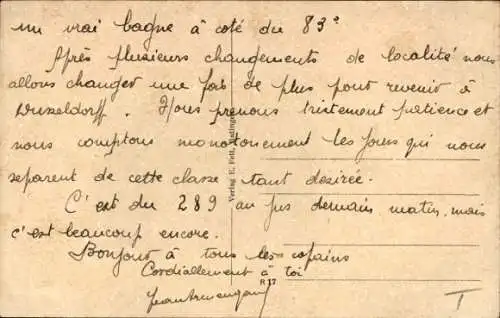 un vrai bagne à coté du 83e
Après plusieurs changements de localité nous
allons changer une fois de plus pour revenir à
Dusseldorff. Nous prenons tristement patience et
nous comptons monotonement les jours qui nous
séparent de cette classe tant desirée.
C'est du 289 au jus demain matin, mais
c'est beaucoup encore.
Bonjour à tous les copains
Cordiallement à toi
R 17
Verlag E. Fell,
T